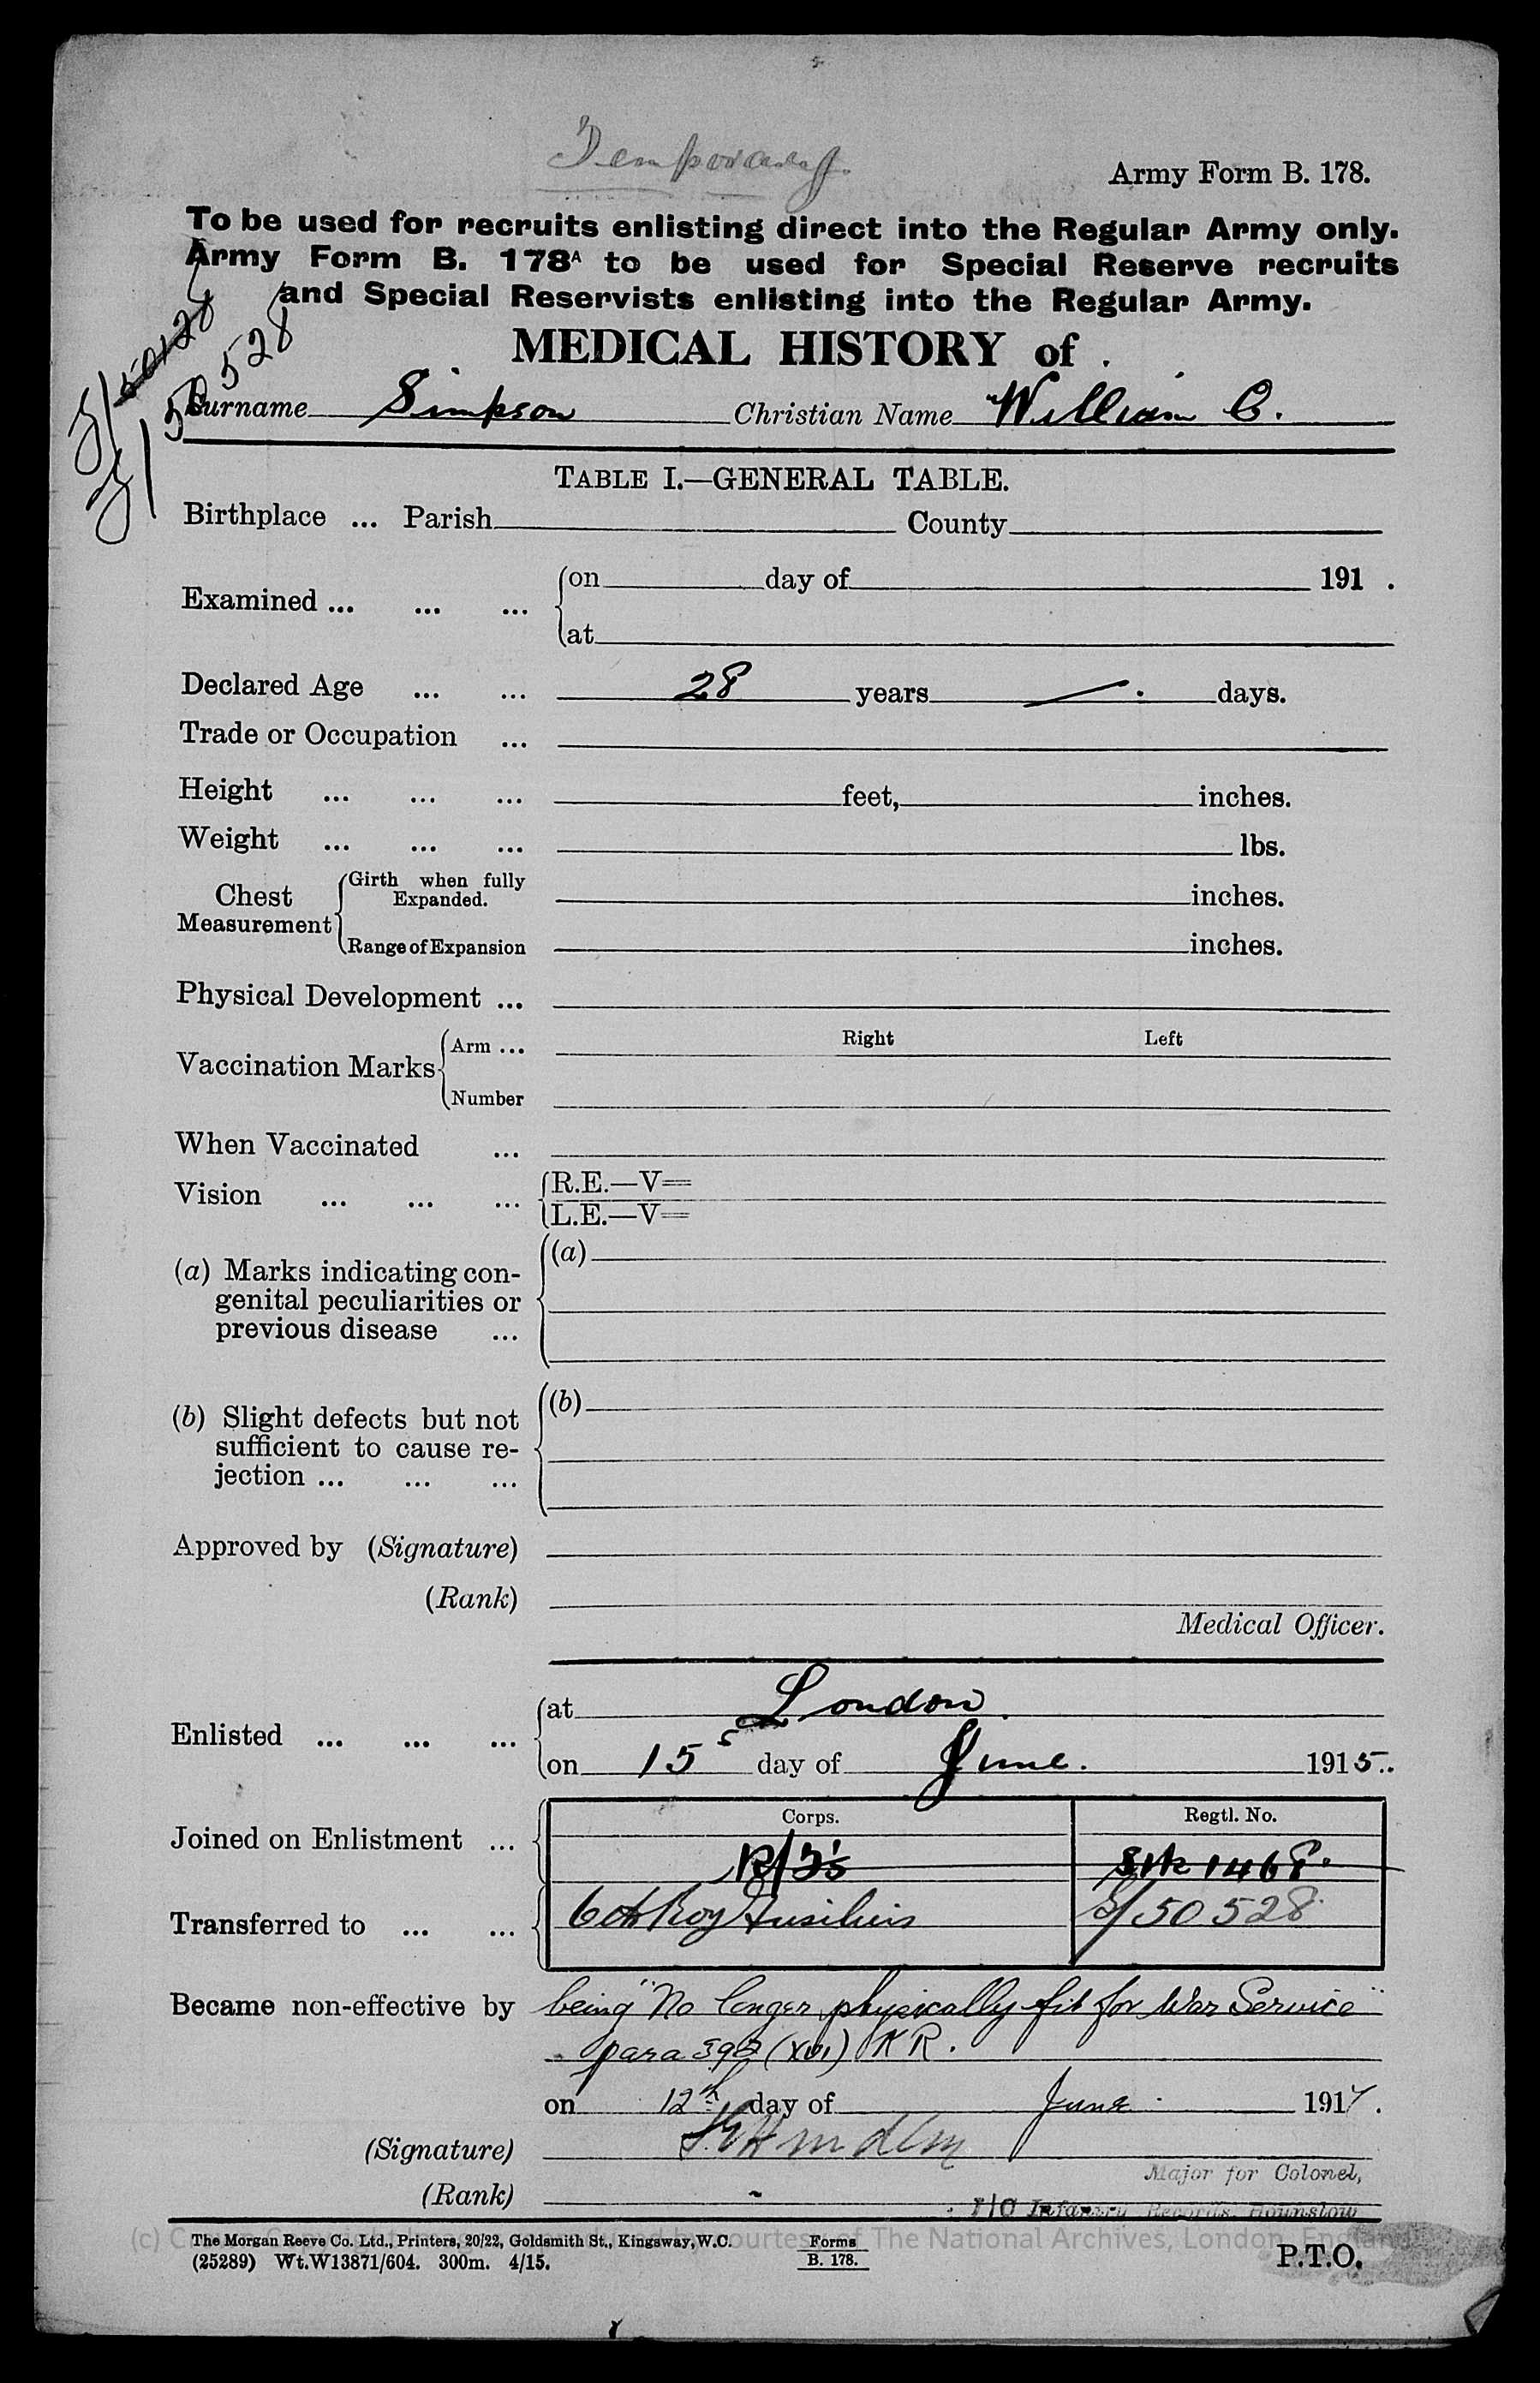 Temporary.
Army Form B. 178.
To be used for recruits enlisting direct into the Regular Army only.
Army Form B. 178A to be used for Special Reserve recruits
and Special Reservists enlisting into the Regular Army.
G/50128
G/50528
MEDICAL HISTORY of
Surname Simpson Christian Name William C.
TABLE I.—GENERAL TABLE.
Birthplace ... Parish County
Examined ... ... ... on day of 191 .
at
Declared Age ... ... 28 years — . days.
Trade or Occupation ...
Height ... ... ... feet, inches.
Weight ... ... ... lbs.
Chest Measurement Girth when fully Expanded. inches.
Range of Expansion inches.
Physical Development ...
Right Left
Vaccination Marks Arm ...
Number
When Vaccinated ...
Vision ... ... ... R.E.—V=
L.E.—V=
(a) Marks indicating con- (a)
genital peculiarities or
previous disease ...
(b) Slight defects but not (b)
sufficient to cause re-
jection ... ... ...
Approved by (Signature)
(Rank)
Medical Officer.
Enlisted ... ... ... at London.
on 15 day of June. 1915.
Corps. Regtl. No.
Joined on Enlistment ... 1468.
Transferred to ... ... 6th Roy Fusiliers G/50528
Became non-effective by being "No longer physically fit for War Service"
para 392 (xvi) KR.
on 12th day of June 1917.
(Signature)
Major for Colonel,
(Rank) I/C Infantry Records, Hounslow
(c) Crown Copyright Images reproduced by courtesy of The National Archives, London, England.
The Morgan Reeve Co. Ltd., Printers, 20/22, Goldsmith St., Kingsway, W.C.
(25289) Wt.W13871/604. 300m. 4/15.
Forms
B. 178.
P.T.O.